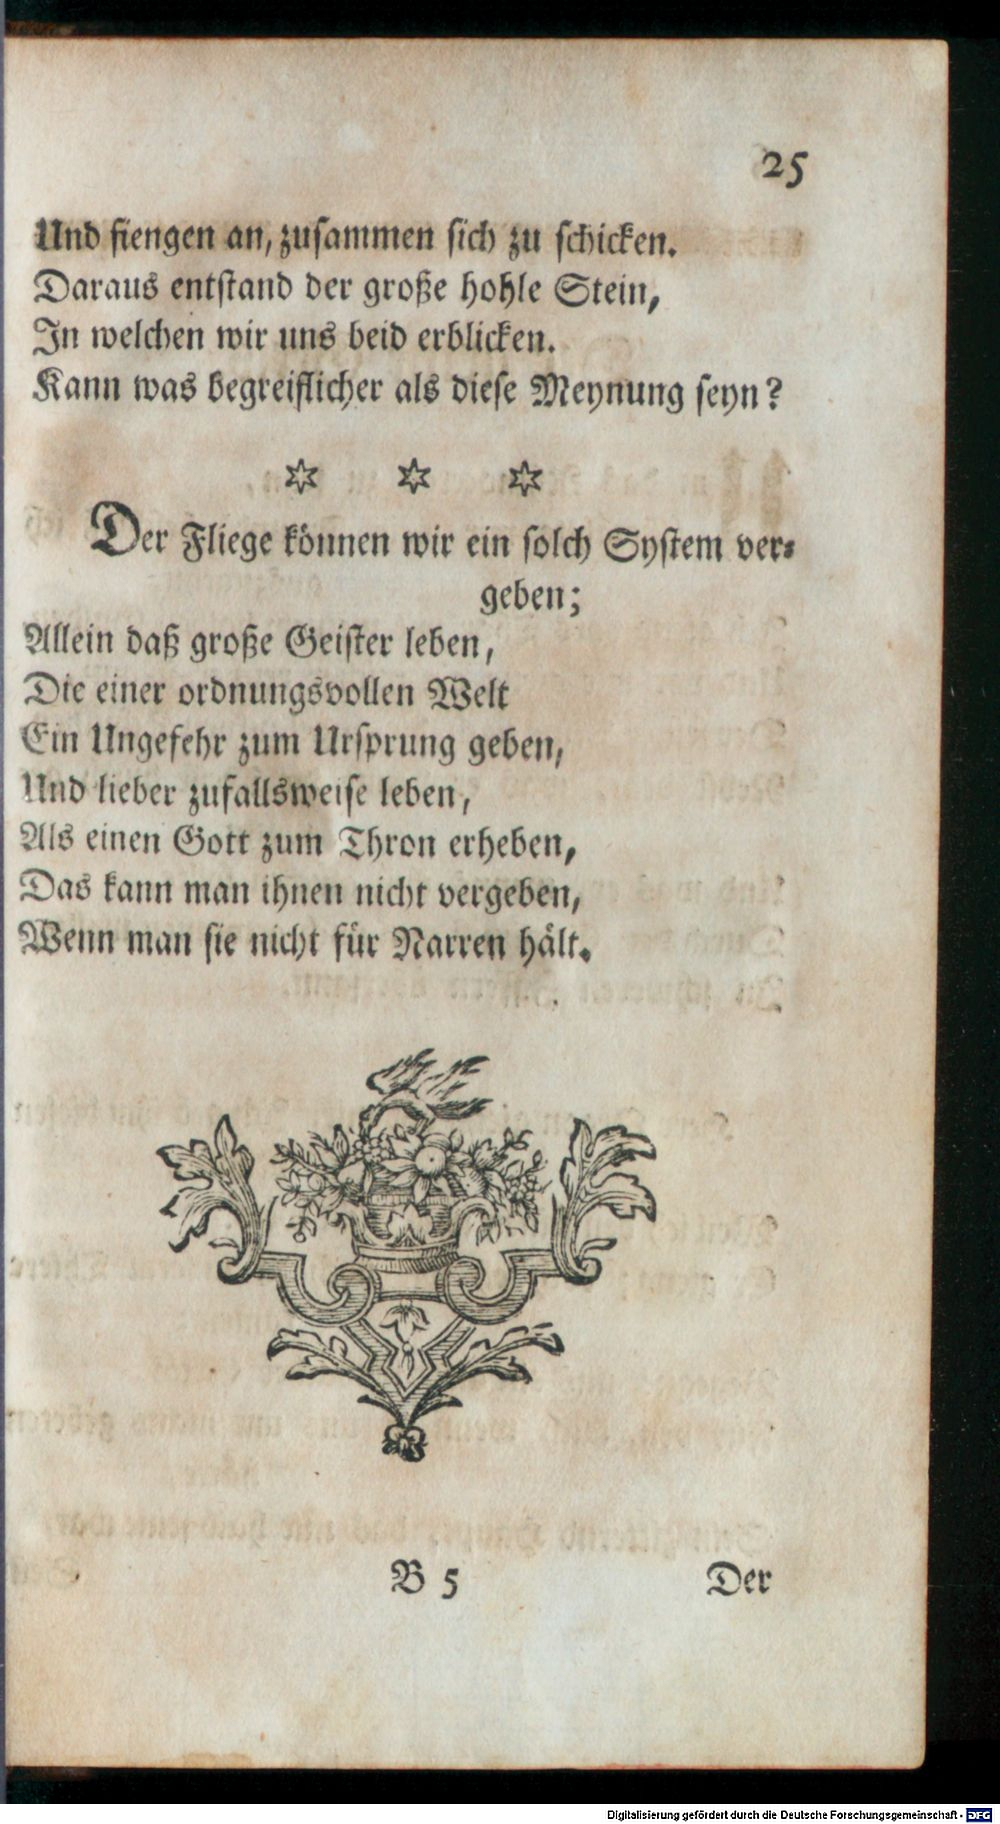 25
Und fiengen an, zusammen sich zu schicken.
Daraus entstand der große hohle Stein,
In welchen wir uns beid erblicken.
Kann was begreiflicher als diese Meynung seyn?
Der Fliege können wir ein solch System ver-
geben;
Allein daß große Geister leben,
Die einer ordnungsvollen Welt
Ein Ungefehr zum Ursprung geben,
Und lieber zufallsweise leben,
Als einen Gott zum Thron erheben,
Das kann man ihnen nicht vergeben,
Wenn man sie nicht für Narren hält.
B 5 Der
Digitalisierung gefördert durch die Deutsche Forschungsgemeinschaft - DFG